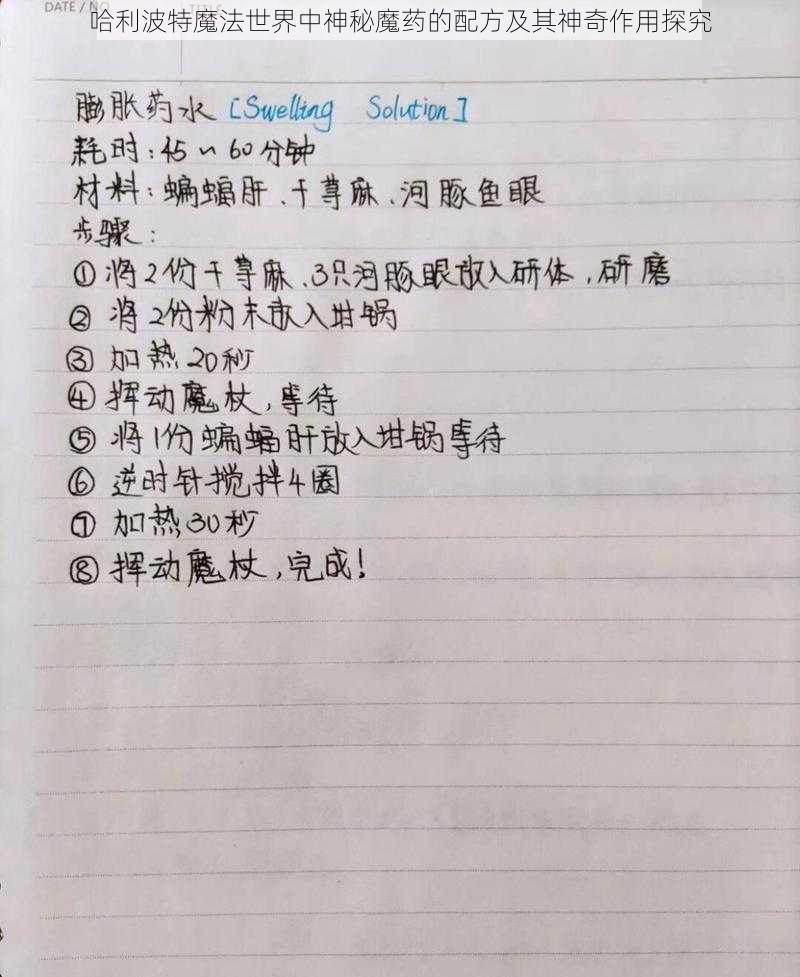 DATE / NO
哈利波特魔法世界中神秘魔药的配方及其神奇作用探究
膨胀药水 [Swelling Solution]
耗时:45~60分钟
材料:蝙蝠肝、干荨麻、河豚鱼眼
步骤:
① 将2份干荨麻、3只河豚眼放入研体,研磨
② 将2份粉末放入坩锅
③ 加热20秒
④ 挥动魔杖,等待
⑤ 将1份蝙蝠肝放入坩锅等待
⑥ 逆时针搅拌4圈
⑦ 加热30秒
⑧ 挥动魔杖,完成!